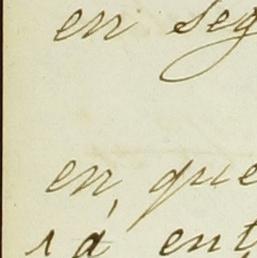 en seg
en, que
rá ent